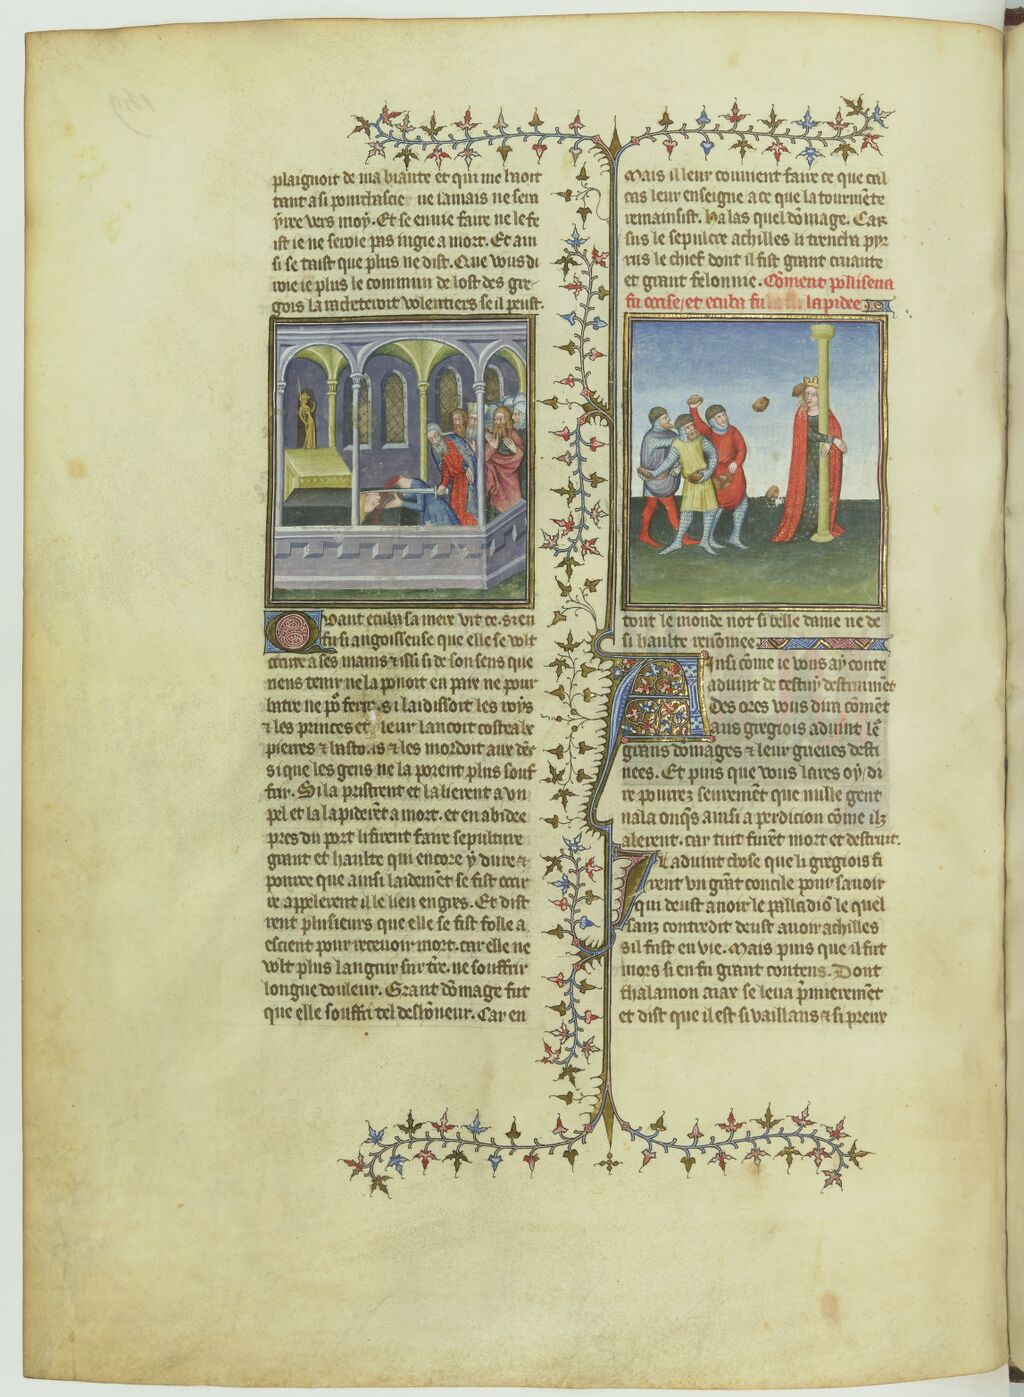 plaignoit de ma biaute et qui me haoit
tant a si pourchascie ne iamais ne sera
yre vers moy. Et se enuie faire ne le fe
ist ie ne seroie pas iugie a mort. Et ain
si se taist que plus ne dist. Que vous di
roie ie plus le commun de lost des gre
gois la rachetroit volentiers se il peust.
Quant ecuba sa mere vit ce. si en
fu si angoisseuse que elle se volt
occire a ses mains et issi si de son sens que
riens tenir ne la pouoit en paix ne pour
batre ne po ferir. si laidissoit les roys
et les princes et leur lancoit costeaulx
pierres et bastons et les mordoit aux dens
si que les gens ne la porent plus souf
frir. Si la pristrent et la lierent a vn
pel et la lapiderent a mort. et en abidee
pres du port li firent faire sepulture
grant et haulte qui encore y dure et
pource que ainsi laidement se fist occir
re appelerent il le lieu engres. Et dist
rent plusieurs que elle se fist folle a
escient pour receuoir mort. car elle ne
volt plus languir sur tre. ne souffrir
longue douleur. Grant domage fut
que elle souffri tel deshoneur. Car en
Mais il leur conuient faire ce que cal
cas leur enseigne a ce que la tourmente
remainsist. Halas quel domage. Car
sus le sepulcre achilles li trencha pyr
rus le chief dont il fist grant cruaute
et grant felonnie. Coment pollisena
fu occise et ecuba fu lapidee
tout le monde not si belle dame ne de
si haulte renomee
Ainsi come ie vous ay conte
aduint de cestuy destruiment
Des ores vous diray coment
aus gregiois aduint les
grans domages et leur grieues desti
nees. Et puis que vous laures oy di
re pourrez seurement que nulle gent
nala onques ainsi a perdicion come ilz
alerent. car tuit furent mort et destruit.
Il aduint chose que li gregiois fi
rent vn grant concile pour sauoir
qui deust auoir le palladion le quel
sanz contredit deust auoir achilles
sil fust en vie. Mais puis que il fut
mors si en fu grant contens. Dont
thalamon aiax se leua premierement
et dist que il est si vaillans et si preux